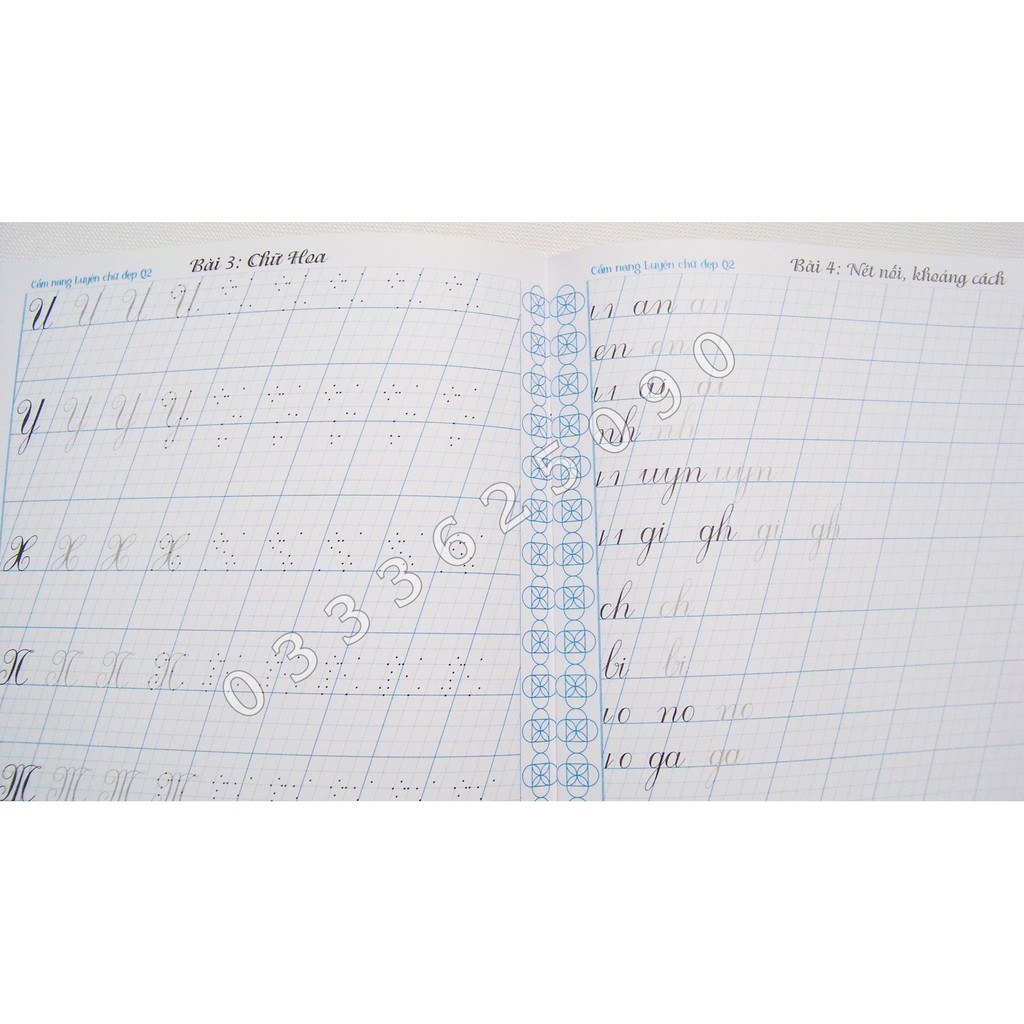 Cẩm nang Luyện chữ đẹp Q2
Bài 3: Chữ Hoa
U U U U
Y Y Y Y
X X X X
N N N N
M M M M
Cẩm nang Luyện chữ đẹp Q2
Bài 4: Nét nối, khoảng cách
an an
en en
ai ai
nh nh
uyn uyn
gi gh gi gh
ch ch
bi bi
no no
ga ga
0333625090